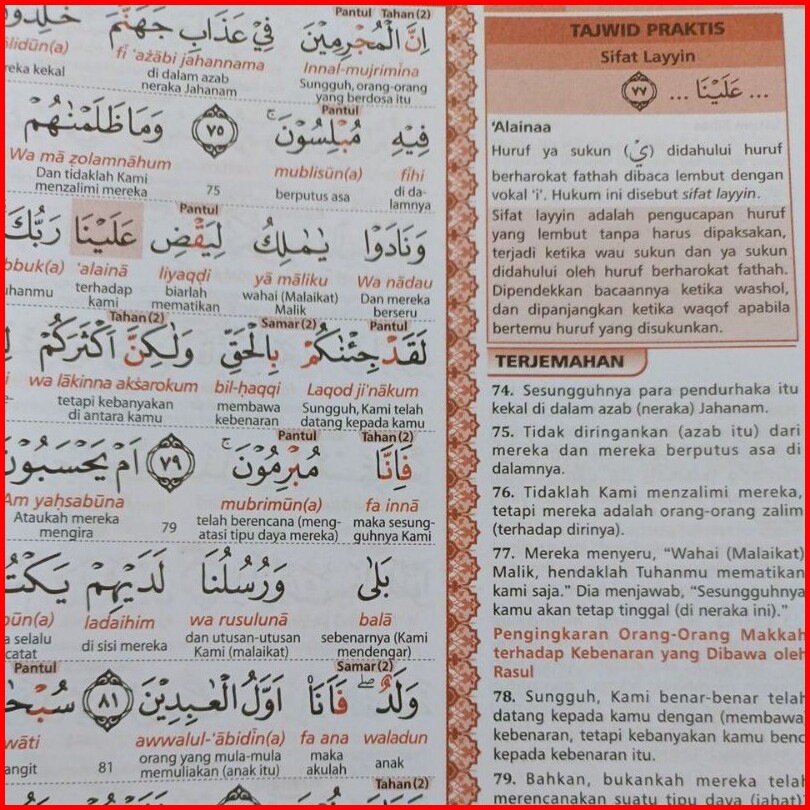 Pantul Tahan(2)
اِنَّ الْمُجْرِمِيْنَ فِيْ عَذَابِ جَهَنَّمَ خٰلِدُوْنَ
Innal-mujrimīna fī ‘ażābi jahannama
Sungguh, orang-orang yang berdosa itu
di dalam azab neraka Jahanam
kekal
Pantul
فِيْهِ مُبْلِسُوْنَ ۚ ٧٥ وَمَا ظَلَمْنٰهُمْ
fīhi mublisūn(a) Wa mā ẓolamnāhum
di dalamnya
berputus asa
75
Dan tidaklah Kami menzalimi mereka
Pantul
وَنَادَوْا يٰمٰلِكُ لِيَقْضِ عَلَيْنَا رَبُّكَ
Wa nādau yā māliku liyaqḍi ‘alainā
Dan mereka berseru
wahai (Malaikat) Malik
biarlah mematikan
terhadap kami
Pantul Samar(2) Tahan(2)
لَقَدْ جِئْنٰكُمْ بِالْحَقِّ وَلٰكِنَّ اَكْثَرَكُمْ
Laqod ji'nākum bil-ḥaqqi wa lākinna akṡarokum
Sungguh, Kami telah datang kepada kamu
membawa kebenaran
tetapi kebanyakan di antara kamu
Tahan(2) Pantul
فَاِنَّا مُبْرِمُوْنَ ۚ ٧٩ اَمْ يَحْسَبُوْنَ
fa innā mubrimūn(a) Am yaḥsabūna
maka sesungguhnya Kami
telah berencana (mengatasi tipu daya mereka)
79
Ataukah mereka mengira
بَلٰى وَرُسُلُنَا لَدَيْهِمْ
balā wa rusulunā ladaihim
sebenarnya (Kami mendengar)
dan utusan-utusan Kami (malaikat)
di sisi mereka
selalu
Samar(2) Pantul
وَلَدٌ ۖ فَاَنَا۠ اَوَّلُ الْعٰبِدِيْنَ ٨١
waladun fa ana awwalul-‘ābidīn(a)
anak
maka akulah
orang yang mula-mula memuliakan (anak itu)
81
Tahan(2)
TAJWID PRAKTIS
Sifat Layyin
... عَلَيْنَا ... ٧٧
‘Alainaa
Huruf ya sukun (يْ) didahului huruf
berharokat fathah dibaca lembut dengan
vokal 'i'. Hukum ini disebut sifat layyin.
Sifat layyin adalah pengucapan huruf
yang lembut tanpa harus dipaksakan,
terjadi ketika wau sukun dan ya sukun
didahului oleh huruf berharokat fathah.
Dipendekkan bacaannya ketika washol,
dan dipanjangkan ketika waqof apabila
bertemu huruf yang disukunkan.
TERJEMAHAN
74. Sesungguhnya para pendurhaka itu
kekal di dalam azab (neraka) Jahanam.
75. Tidak diringankan (azab itu) dari
mereka dan mereka berputus asa di
dalamnya.
76. Tidaklah Kami menzalimi mereka,
tetapi mereka adalah orang-orang zalim
(terhadap dirinya).
77. Mereka menyeru, “Wahai (Malaikat)
Malik, hendaklah Tuhanmu mematikan
kami saja.” Dia menjawab, “Sesungguhnya
kamu akan tetap tinggal (di neraka ini).”
Pengingkaran Orang-Orang Makkah
terhadap Kebenaran yang Dibawa oleh
Rasul
78. Sungguh, Kami benar-benar telah
datang kepada kamu dengan (membawa
kebenaran, tetapi kebanyakan kamu benc
kepada kebenaran itu.
79. Bahkan, bukankah mereka telah
merencanakan suatu tipu daya (jahat)?